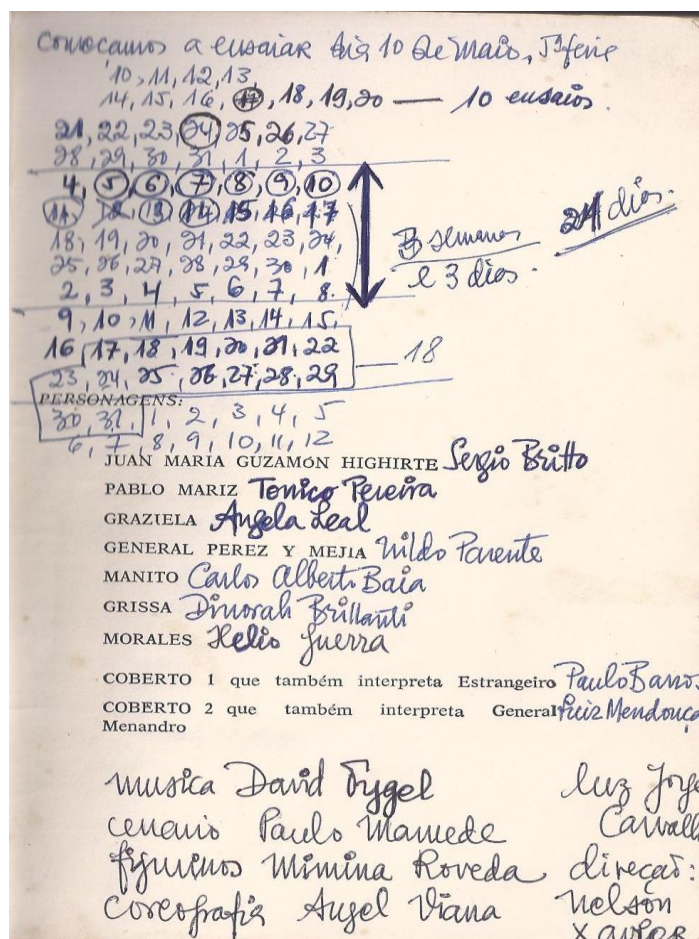 Convocamos a ensaiar dia 10 de Maio, 5ª feira
10, 11, 12, 13,
14, 15, 16, 17, 18, 19, 20 — 10 ensaios.
21, 22, 23, 24, 25, 26, 27
28, 29, 30, 31, 1, 2, 3
4, 5, 6, 7, 8, 9, 10
11, 12, 13, 14, 15, 16, 17
18, 19, 20, 21, 22, 23, 24,
25, 26, 27, 28, 29, 30, 1
2, 3, 4, 5, 6, 7, 8.
semanas
e 3 dias.
dias.
9, 10, 11, 12, 13, 14, 15,
16, 17, 18, 19, 20, 21, 22
— 18
23, 24, 25, 26, 27, 28, 29
PERSONAGENS:
30, 31, 1, 2, 3, 4, 5
6, 7, 8, 9, 10, 11, 12
JUAN MARIA GUZAMÓN HIGHIRTE Sergio Britto
PABLO MARIZ Tonico Pereira
GRAZIELA Angela Leal
GENERAL PEREZ Y MEJIA Nildo Parente
MANITO Carlos Alberto Baia
GRISSA Dinorah Brillanti
MORALES Helio Guerra
COBERTO 1 que também interpreta Estrangeiro Paulo Barros
COBERTO 2 que também interpreta General Luiz Mendonça
Menandro
musica David Tygel
cenario Paulo Mamede
figurinos Mimina Roveda
coreografia Angel Viana
luz Jorge
Carvalh
direção:
Nelson
Xavier